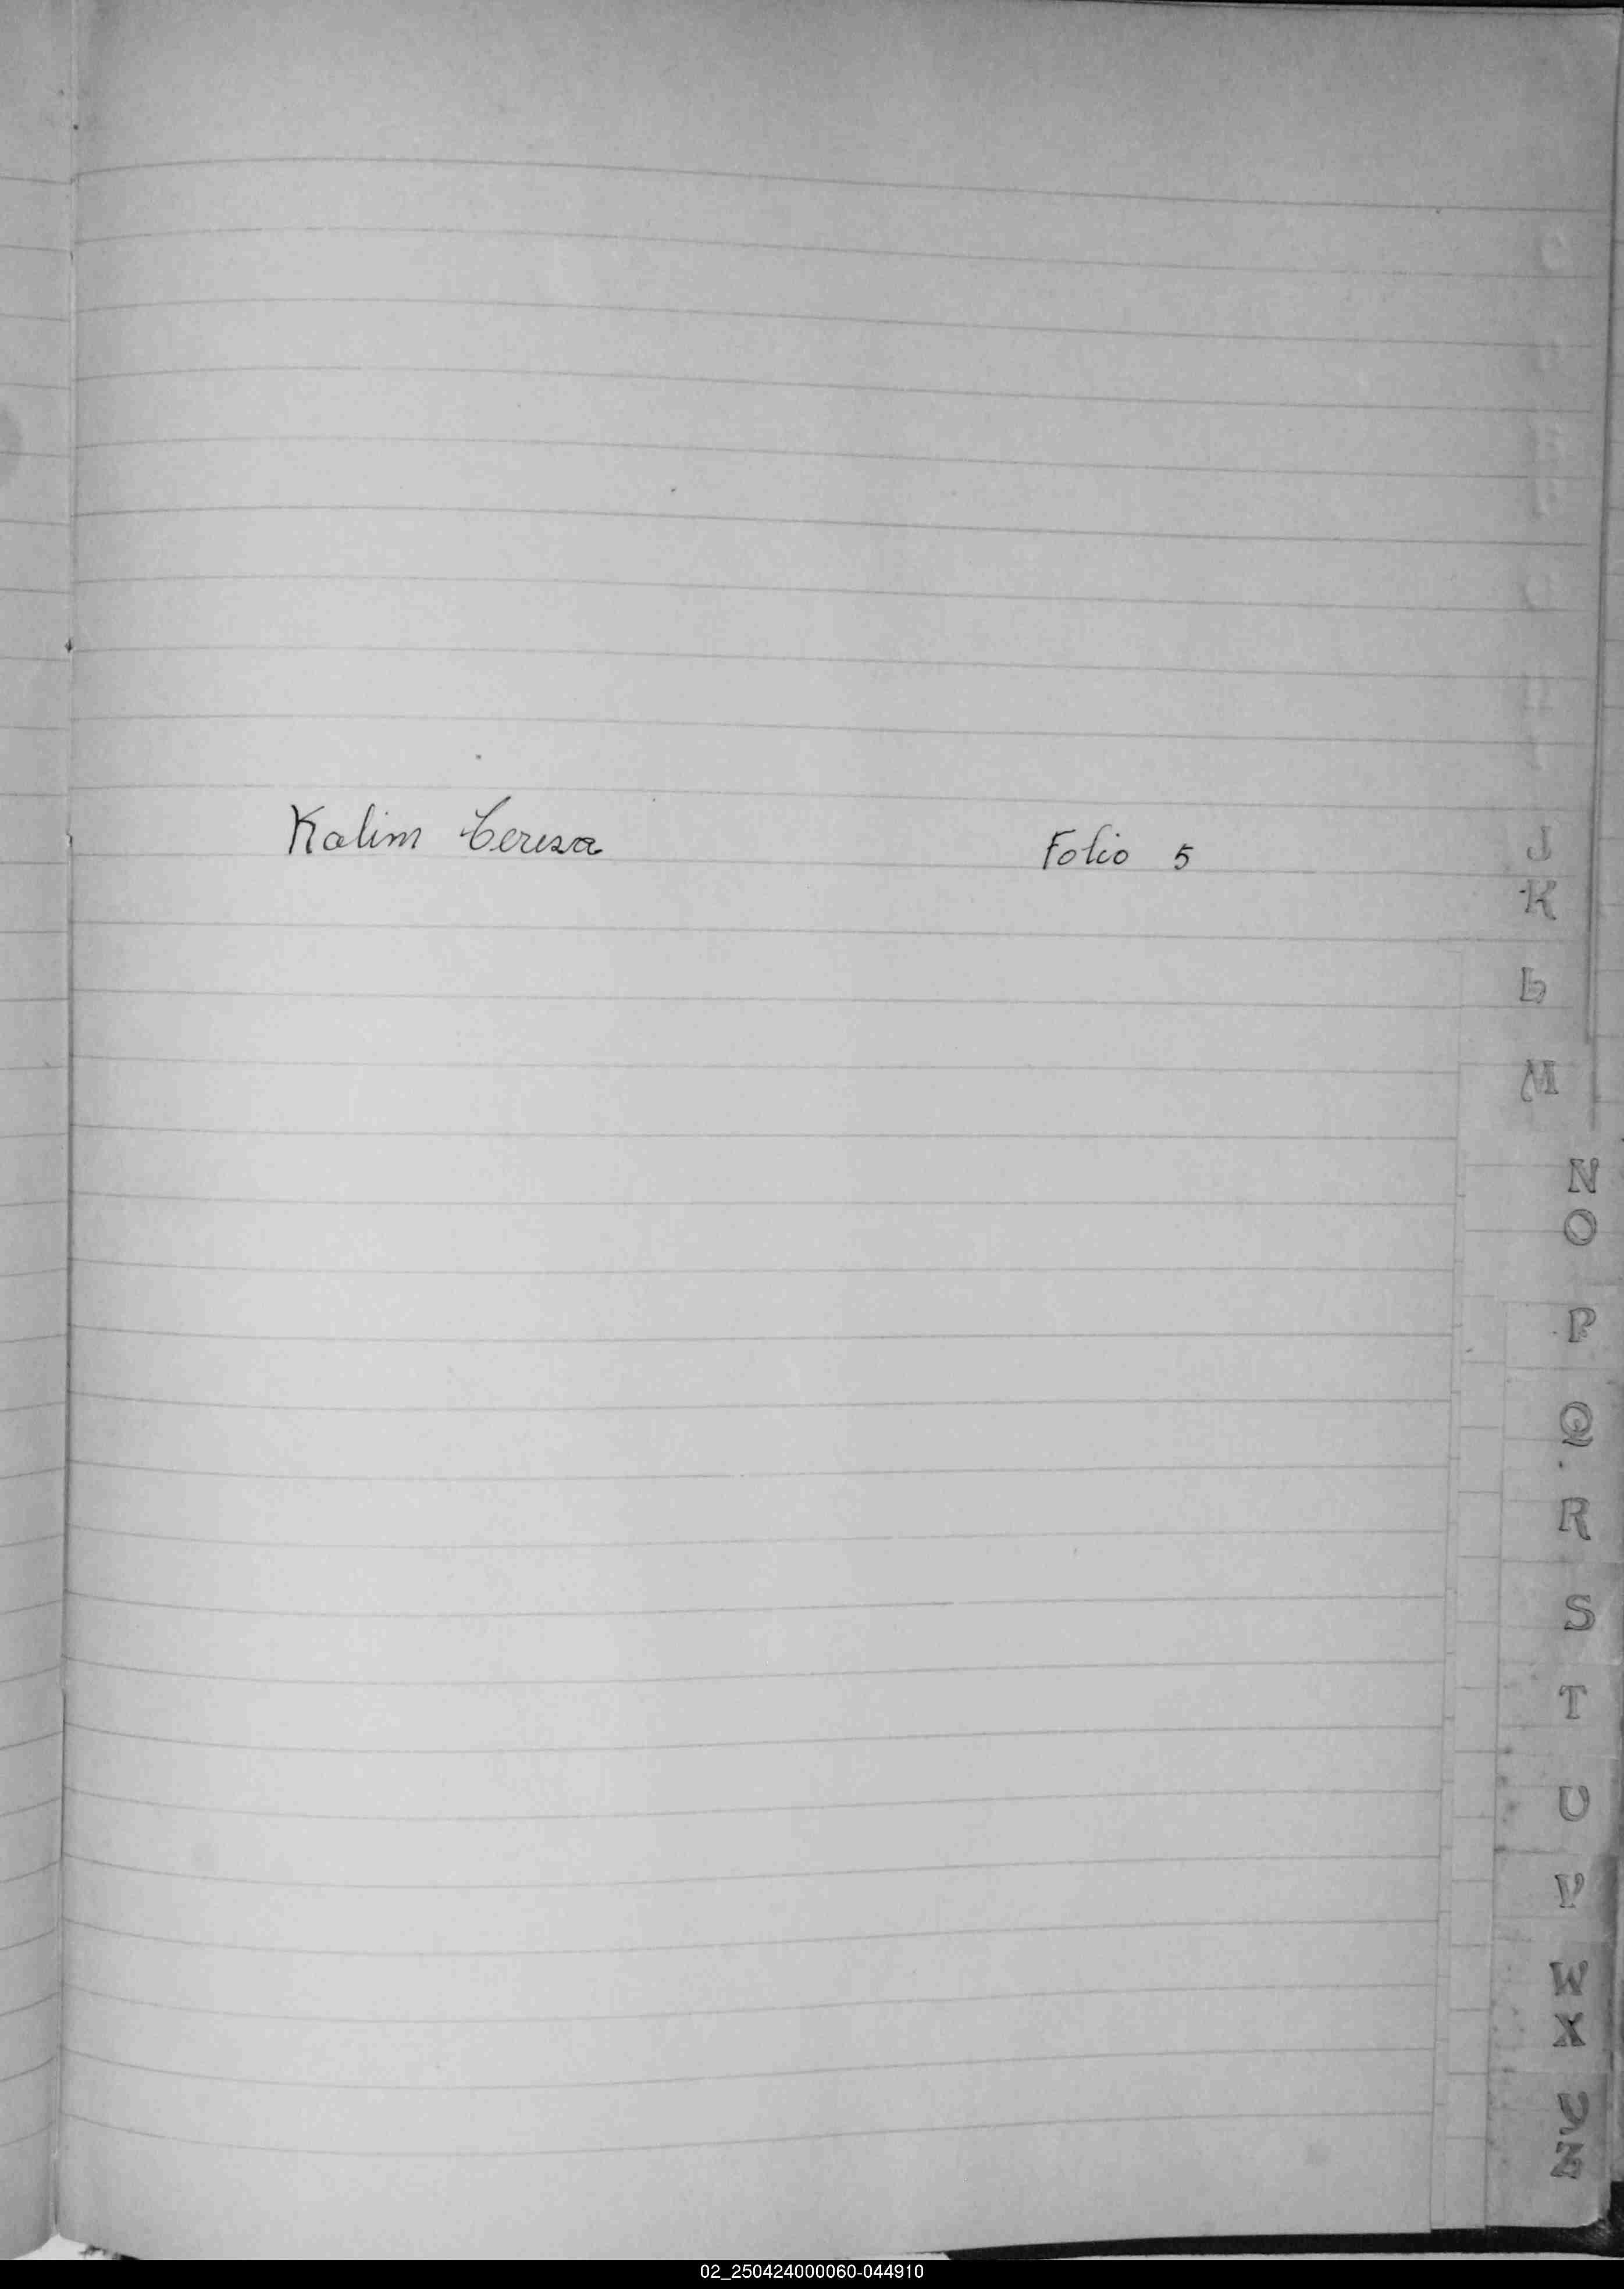 Kalim Teresa Folio 5
J
K
L
M
N
O
P
Q
R
S
T
U
V
W
X
Y
Z
02_250424000060-044910